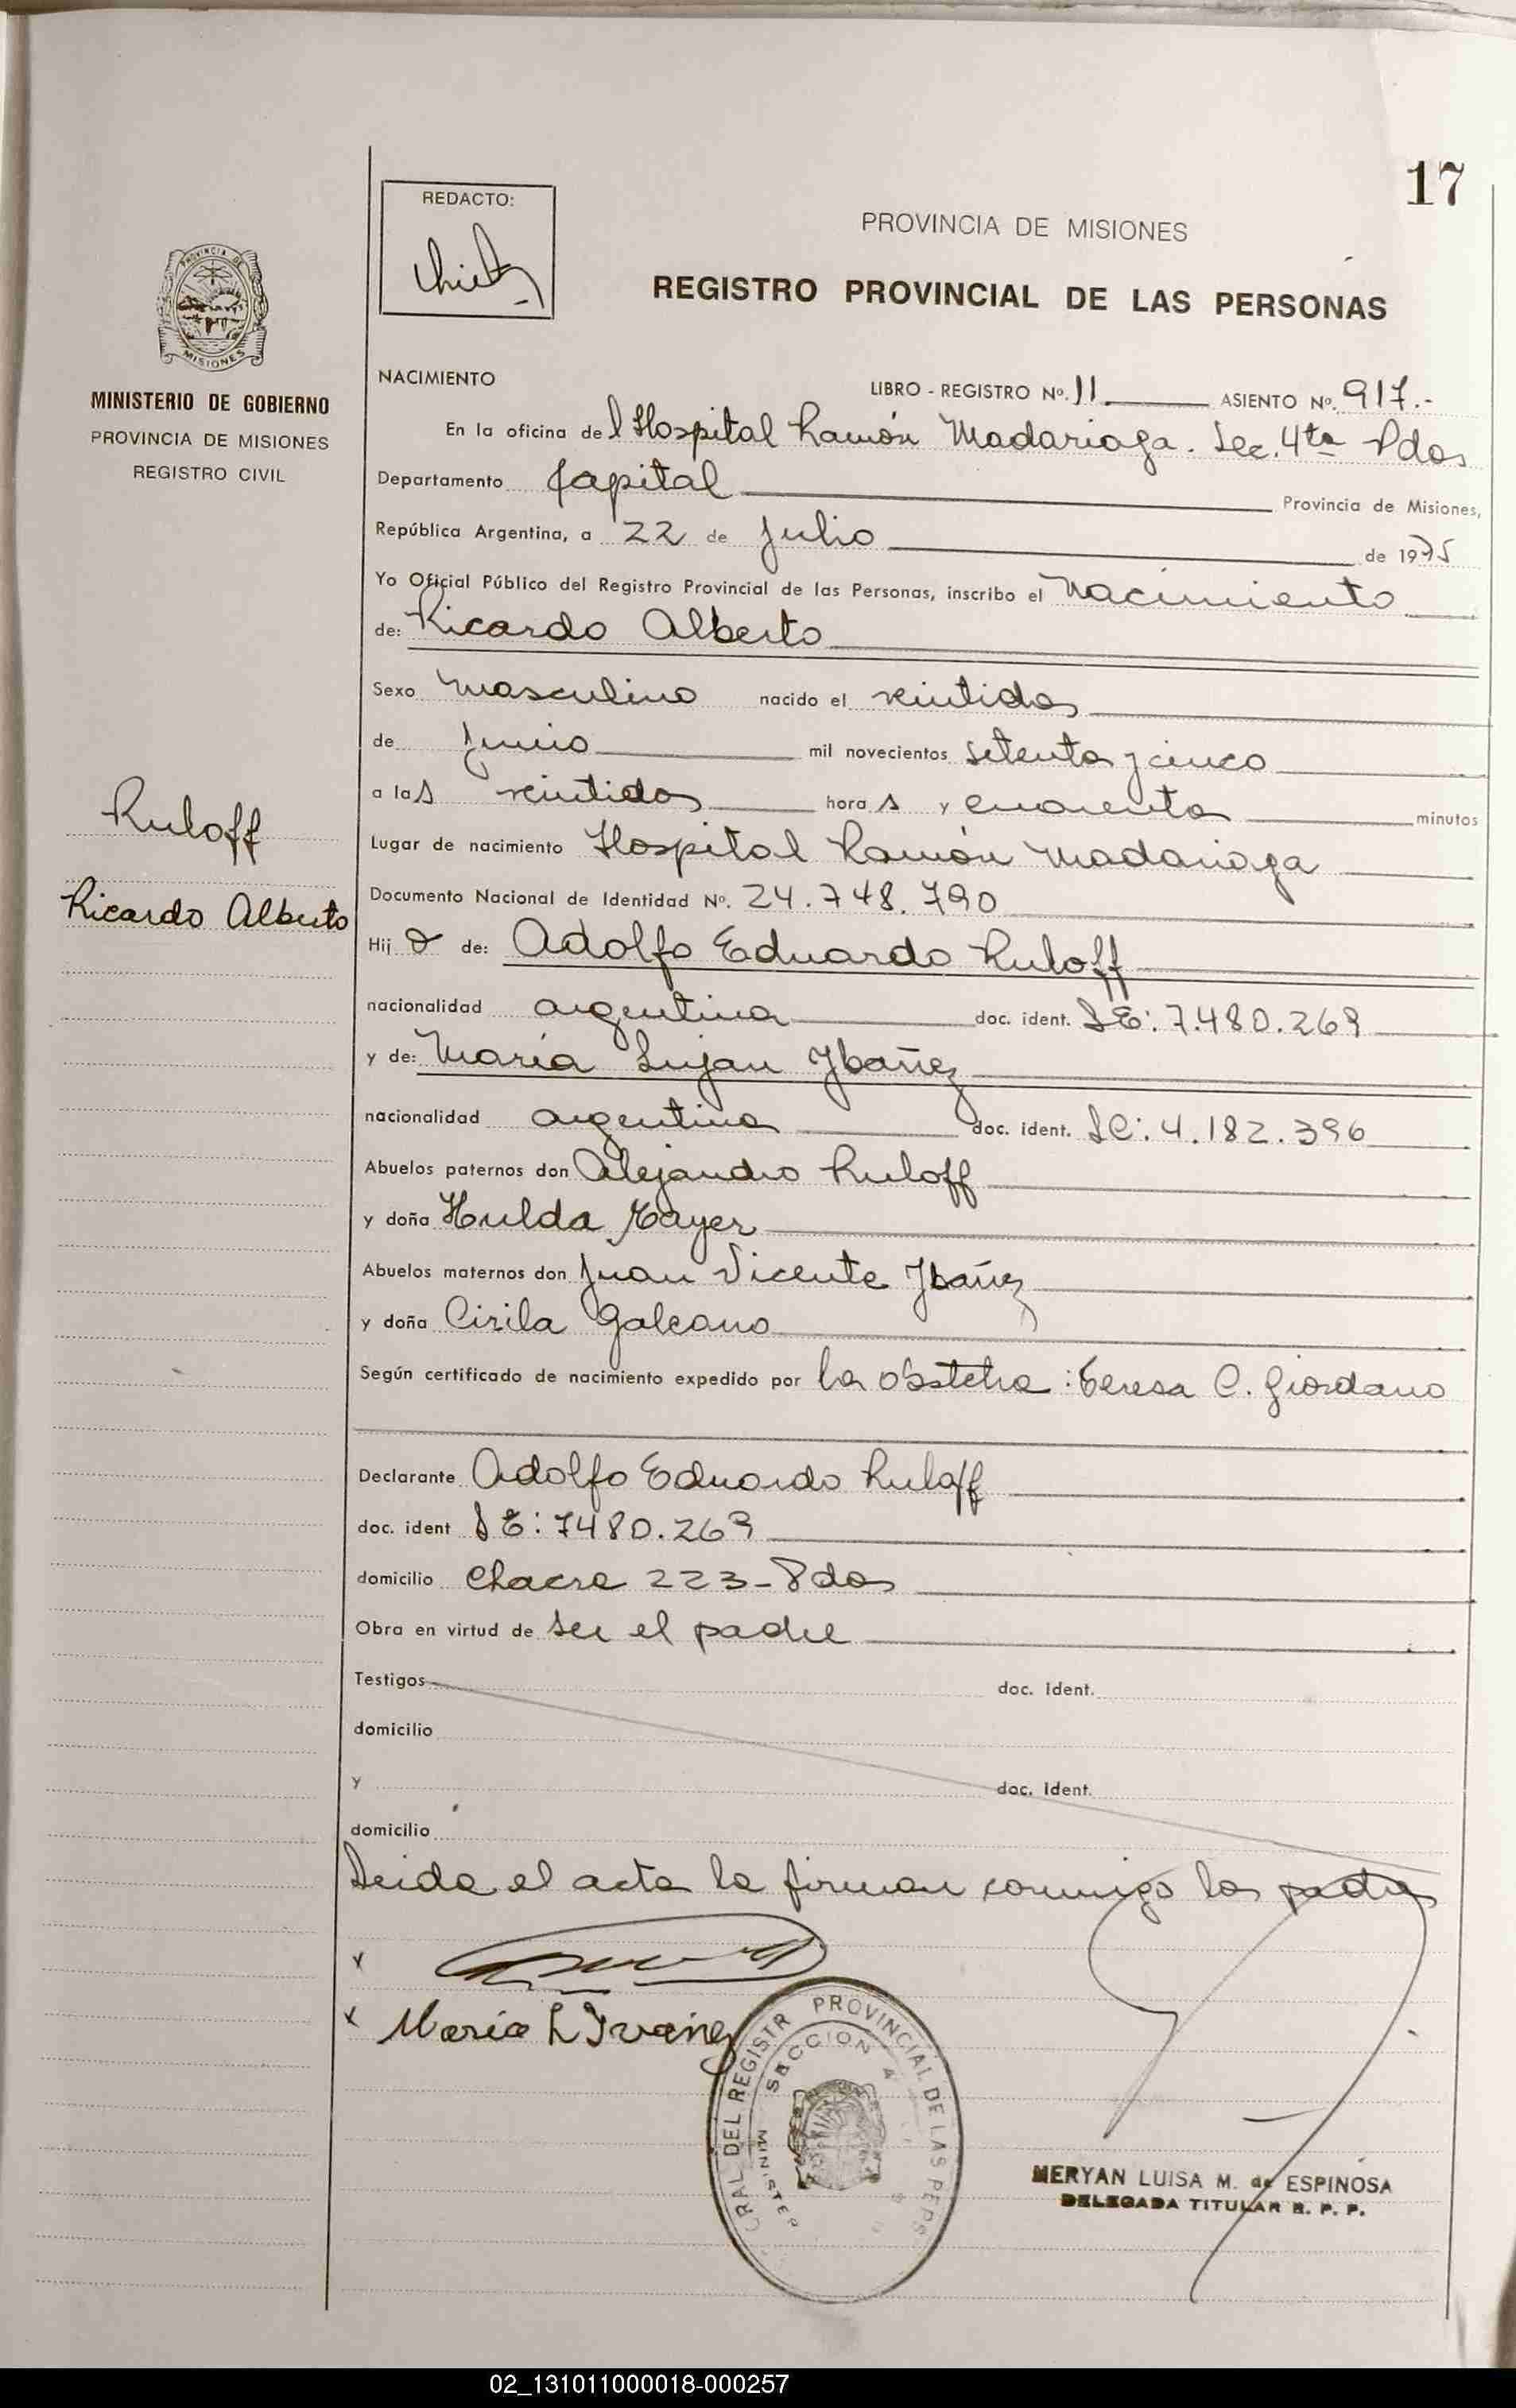 17
REDACTO:
PROVINCIA DE MISIONES
REGISTRO PROVINCIAL DE LAS PERSONAS
PROVINCIA DE
MISIONES
MINISTERIO DE GOBIERNO
PROVINCIA DE MISIONES
REGISTRO CIVIL
Ruloff
Ricardo Alberto
NACIMIENTO
LIBRO - REGISTRO Nº. 11 ASIENTO Nº. 917.-
En la oficina del Hospital Ramón Madariaga. Sec. 4ta Pdas
Departamento Capital Provincia de Misiones,
República Argentina, a 22 de Julio de 1975
Yo Oficial Público del Registro Provincial de las Personas, inscribo el Nacimiento
de: Ricardo Alberto
Sexo masculino nacido el veintidos
de Junio mil novecientos setenta y cinco
a las veintidos horas y cuarenta minutos
Lugar de nacimiento Hospital Ramón Madariaga
Documento Nacional de Identidad Nº. 24.748.790
Hijo de: Adolfo Eduardo Ruloff
nacionalidad argentina doc. ident. LE: 7.480.269
y de: María Lujan Ybañez
nacionalidad argentina doc. ident. LC: 4.182.396
Abuelos paternos don Alejandro Ruloff
y doña Hulda
Abuelos maternos don Juan Vicente Ybañez
y doña Cirila Galeano
Según certificado de nacimiento expedido por la obstetra: Teresa C. Giordano
Declarante Adolfo Eduardo Ruloff
doc. ident LE: 7480.269
domicilio Chacra 223-Pdas
Obra en virtud de ser el padre
Testigos doc. Ident.
domicilio
y doc. Ident.
domicilio
Leida el acta la firman conmigo los padres
x
x María L Ivañez
DEL REGISTR PROVINCIAL DE LAS PERS
SECCION 4
MINISTER
MERYAN LUISA M. de ESPINOSA
DELEGADA TITULAR R. P. P.
02_131011000018-000257